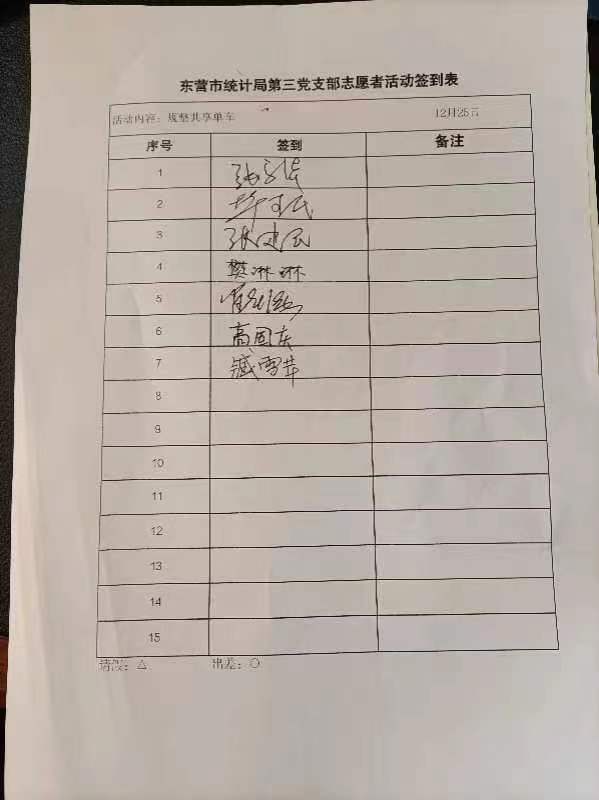 东营市统计局第三党支部志愿者活动签到表
活动内容：规整共享单车 12月25日
序号 签到 备注
1
2
3 张建民
4 樊淋琳
5
6 高国庆
7 臧雪芊
8
9
10
11
12
13
14
15
请假：△ 出差：○